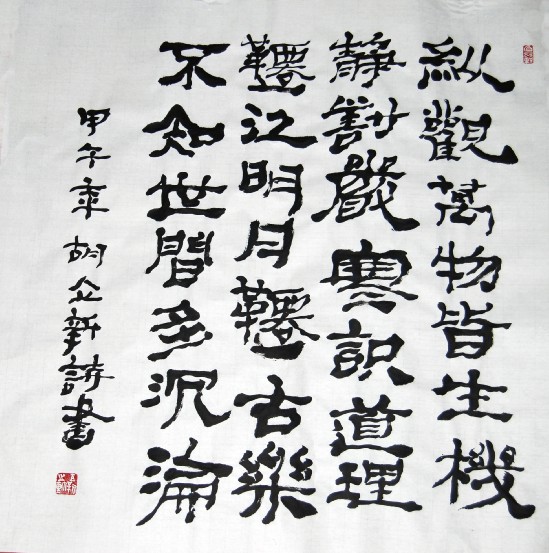 纵觀萬物皆生機
靜對嚴寒识道理
韆江明月韆古樂
不知世間多沉淪
甲午年胡企新詩書